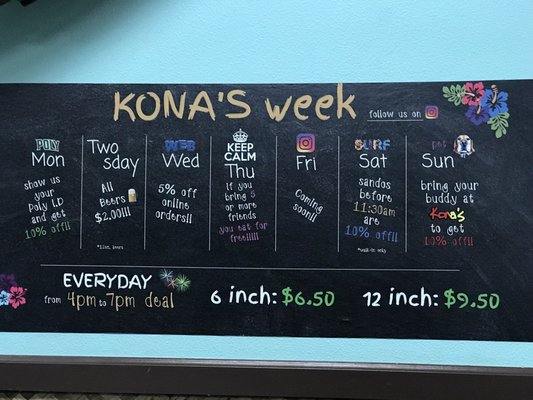 KONA'S week
follow us on
POLY
Mon
show us
your
Poly I.D
and get
10% off!!
Two
sday
All
Beers
$2.00!!!
WEB
Wed
5% off
online
orders!!
KEEP
CALM
Thu
if you
bring 3
or more
friends
you eat for
free!!!!!
Fri
Coming
soon!!
SURF
Sat
sandos
before
11:30am
are
10% off!!
*walk-in only
pet
Sun
bring your
buddy at
Kona's
to get
10% off!!
EVERYDAY
from 4pm to 7pm deal
6 inch: $6.50
12 inch: $9.50